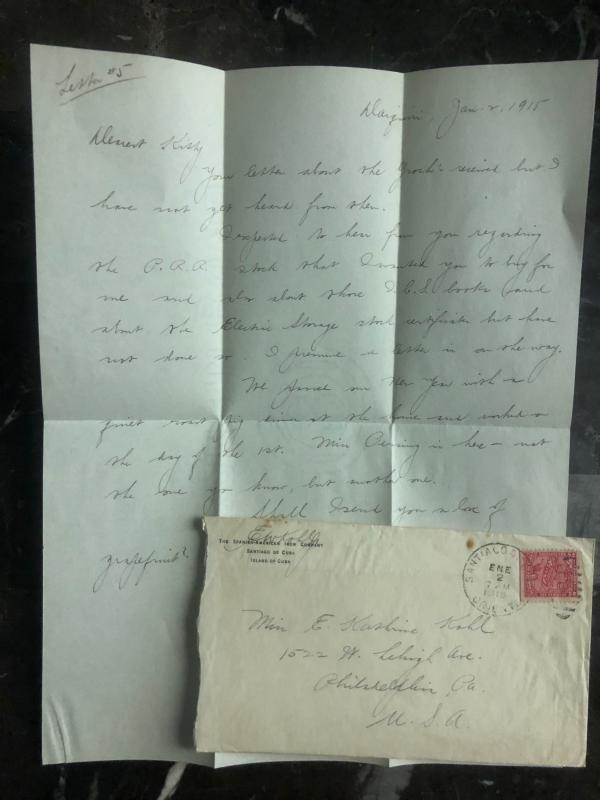 Letter #5
Daiquiri, Jan. 2, 1915
Dearest Kitty
Your letter about the received but I
have not yet heard from them.
I expected to hear from you regarding
the P.R.R. stock that I wanted you to buy for
me and also about those I.C.S. books and
about the Electric Storage stock certificate but have
not done so. I presume a letter is on the way.
We passed our New Year with a
quiet roast pig dinner at the house and worked
the day of the 1st. Miss is here - not
the one you know, but another one.
Shall I send you a box of
grapefruit?
THE SPANISH-AMERICAN IRON COMPANY
SANTIAGO DE CUBA
ISLAND OF CUBA
SANTIAGO D
ENE
2
Miss E. Kathrine Kohl
1522 W. Lehigh Ave.
Philadelphia, Pa.
U.S.A.